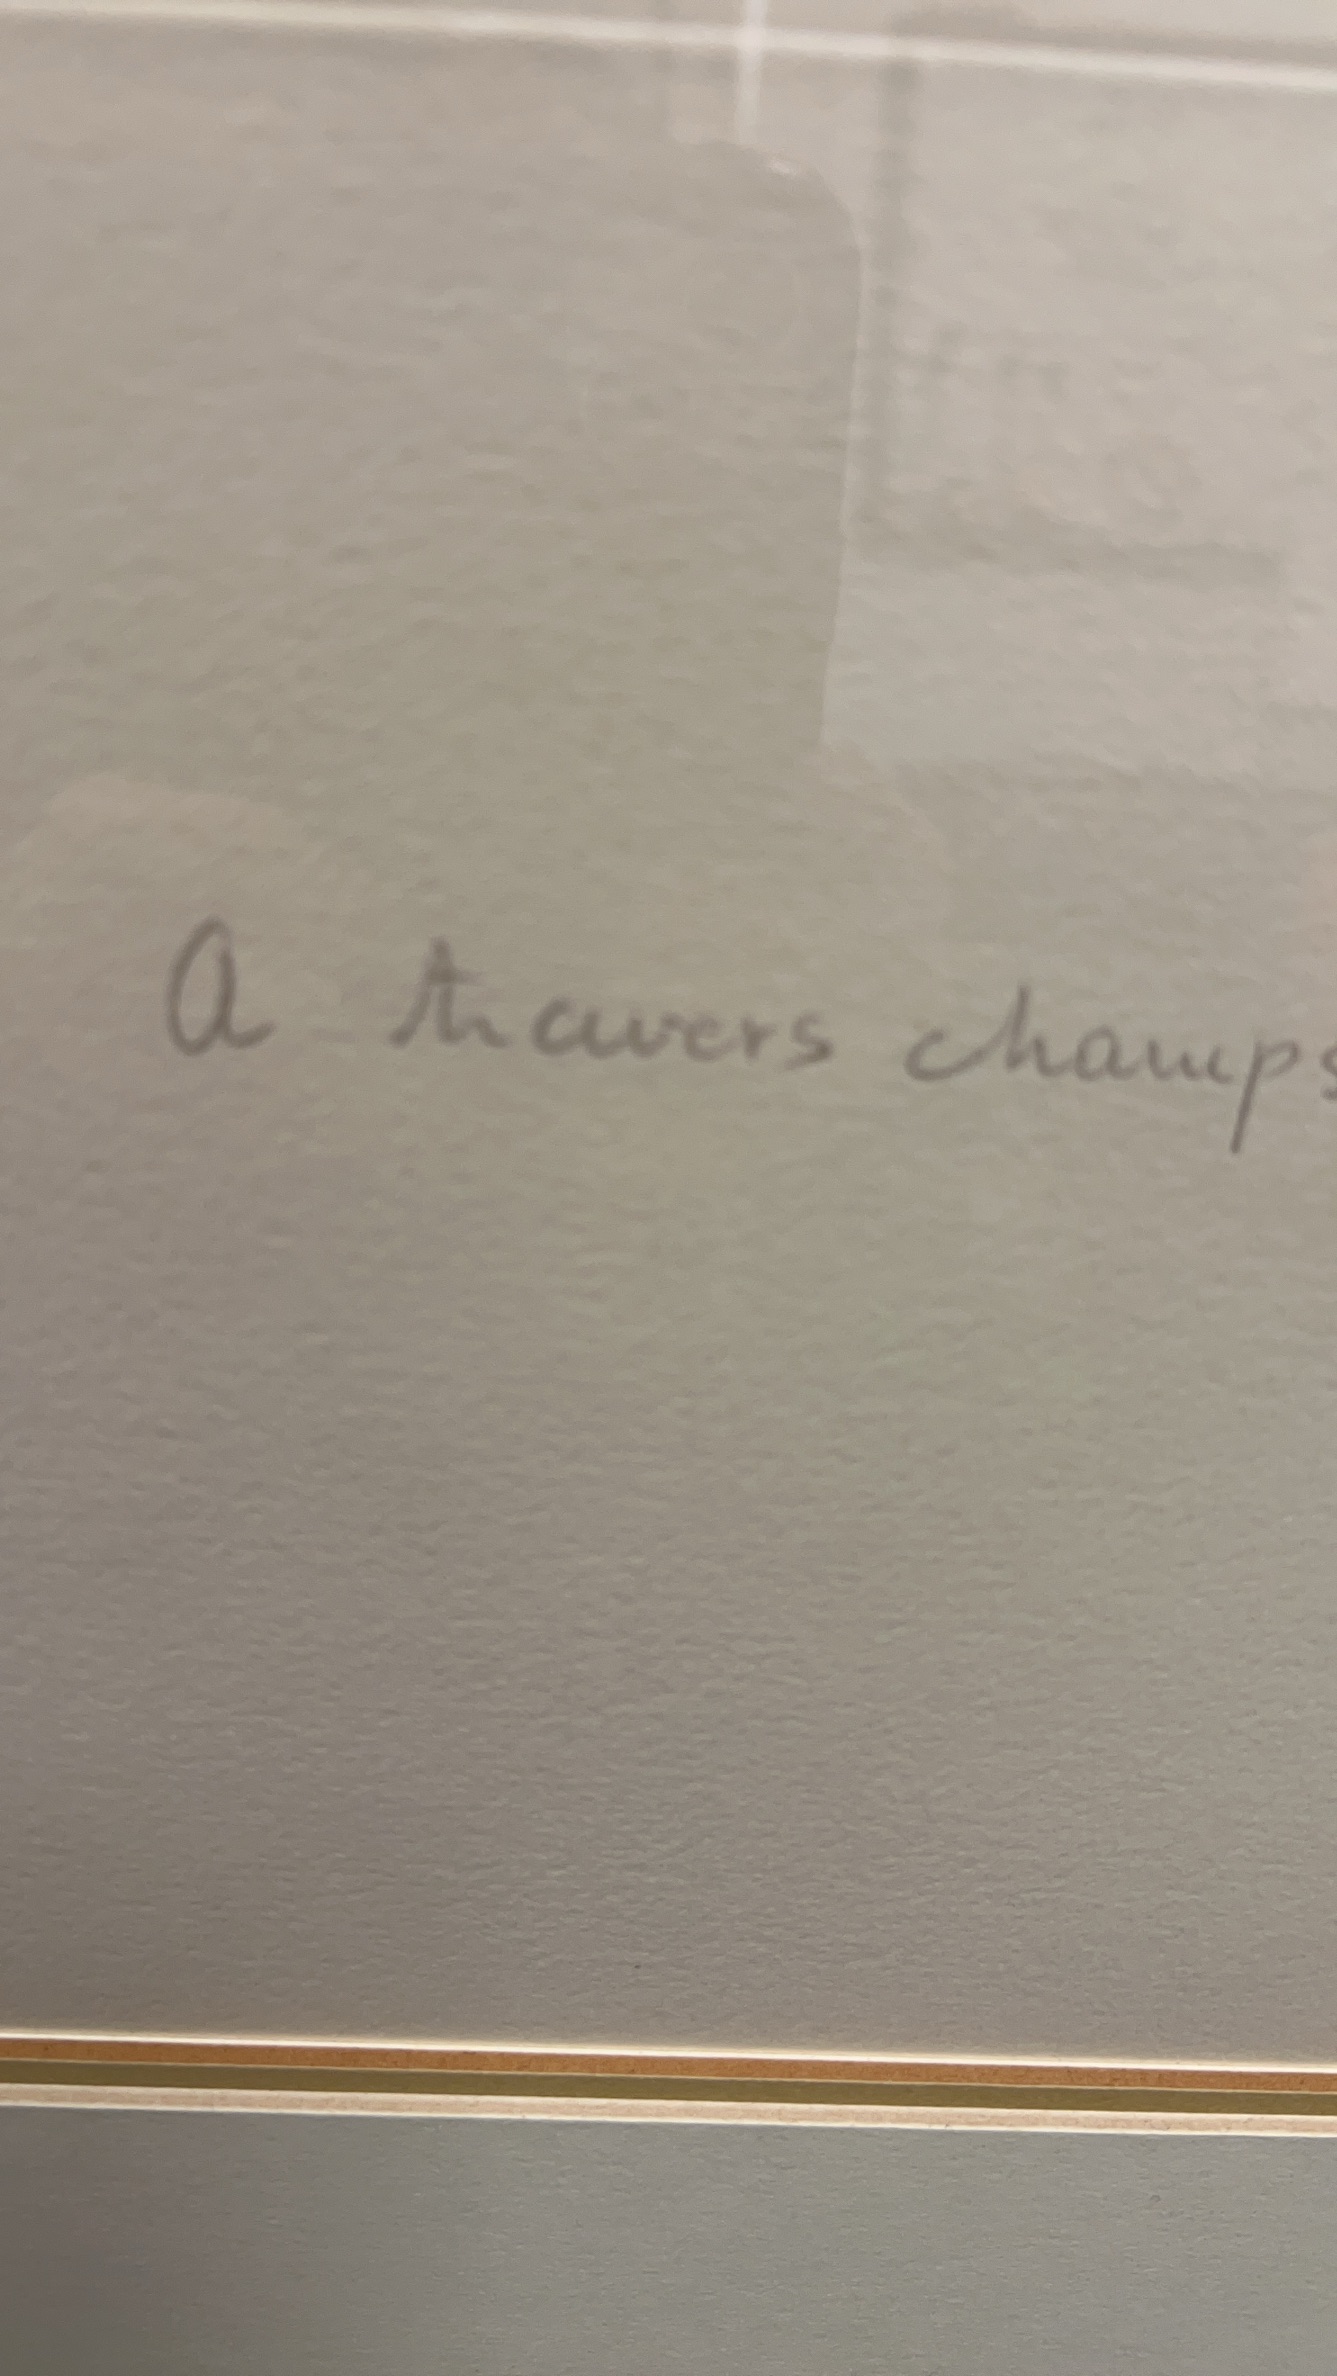 A travers champs